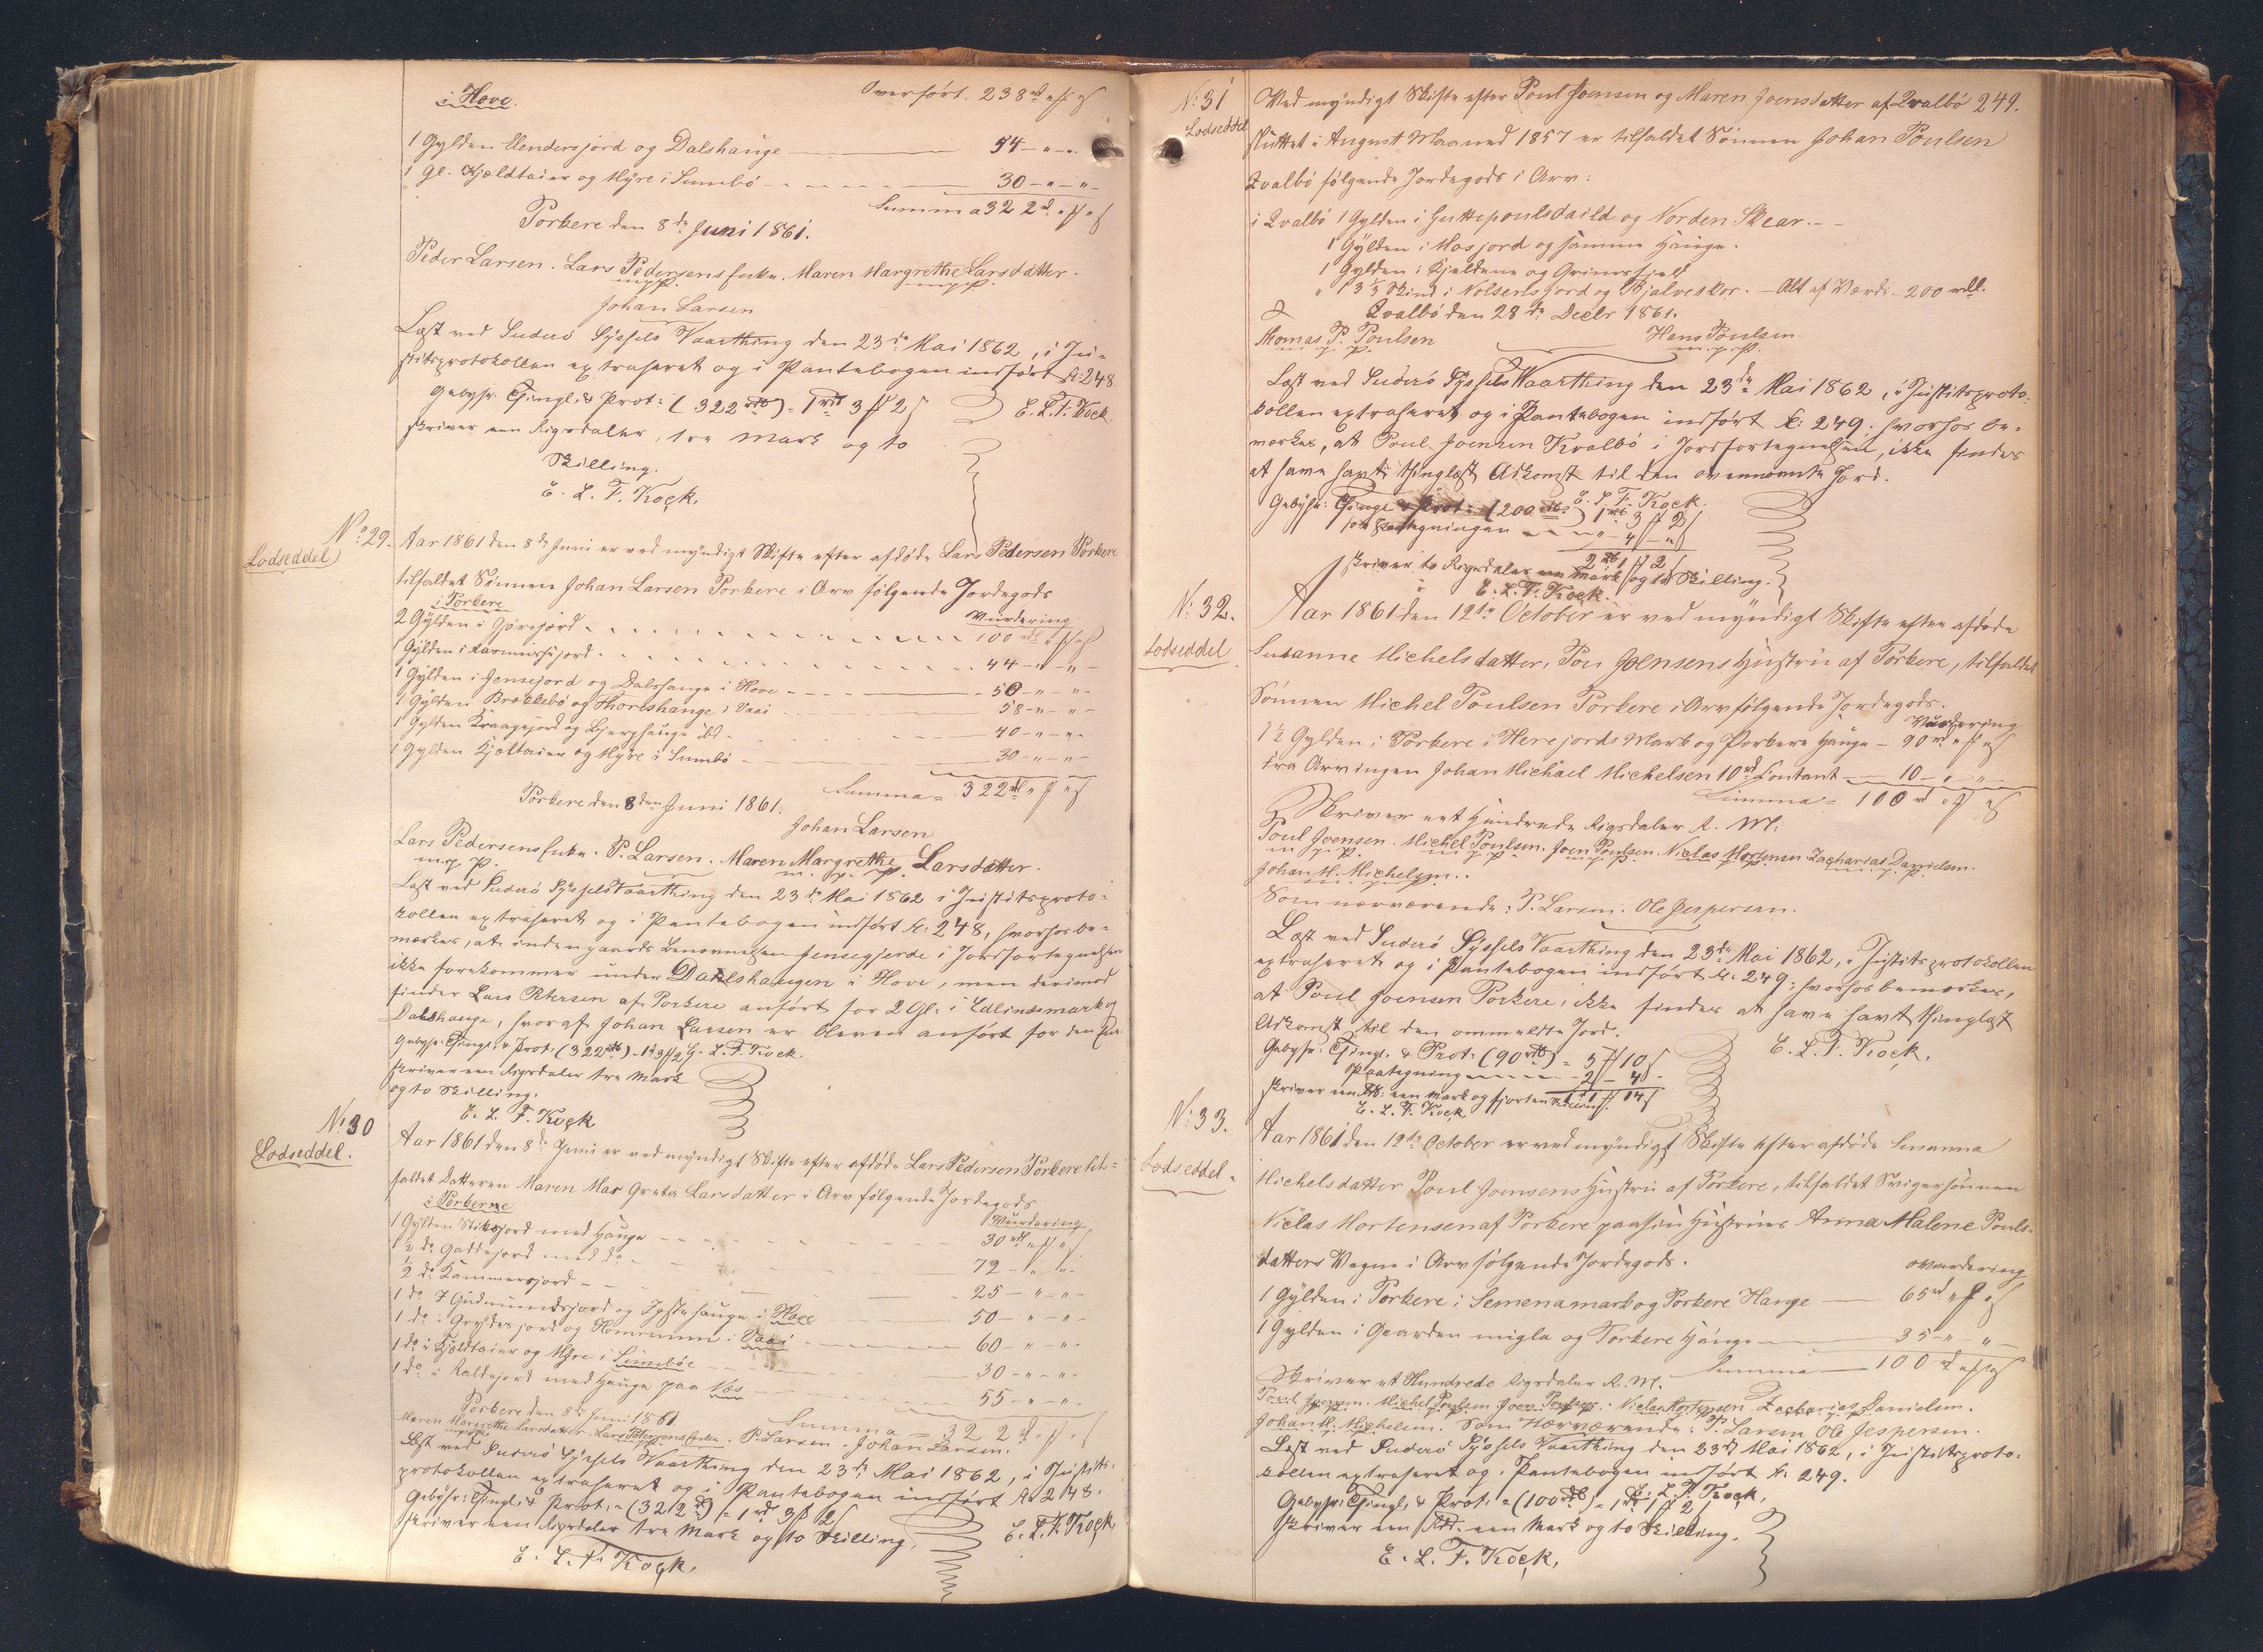 i Hove. Overført. 238 rd " ß " s
1 Gylden Hendersjord og Dalshauge 54 - " - "
1 Gl. Kjældtaier og Myre i Sumbö 30 - " - "
Summa 322 rd. " ß " s
Porkere den 8de Juni 1861.
Peder Larsen. Lars Pedersens Enke. Maren Margrethe Larsdatter.
m.p.P. m.p.P.
Johan Larsen
Læst ved Suderö Syssels Vaarthing den 23de Mai 1862, i Ju-
stitsprotokollen extraheret og i Pantebogen indført fol: 248.
Gebyhr. Thingl. & Prot: (322 rdl) = 1 rd 3 ß 2 s E. L. F. Kock.
skriver een Rigsdaler, tre Mark og to
Skilling.
E. L. F. Kock.
No 29. Aar 1861 den 8de Juni er ved myndigt Skifte efter afdøde Lars Pedersen Porkere
Lodseddel
tilfaldet Sønnen Johan Larsen Porkere i Arv følgende Jordegods
i Porkere Vurdering
2 Gylden i Gjörejord 100 rdl " ß " s
1 Gylden i Rasmussjord 44 - " - "
1 Gylden i Jensejord og Dalshauge i Hove 50 - " - "
1 Gylden Brekkebö og Thorishauge i Vaai 58 - " - "
1 Gylden Kraagejord og Bjerghauge ibd 40 - " - "
1 Gylden Kjeltaier og Myre i Sumbö 30 - " - "
Summa = 322 rdl " ß " s
Porkere den 8den Juni 1861.
Johan Larsen
Lars Pedersens Enke. P. Larsen. Maren Margrethe Larsdatter.
m. p. P. m. p. P.
Læst ved Suderö Syssels Vaarthing den 23de Mai 1862 i Justitsproto-
kollen extraheret og i Pantebogen indført fol: 248, hvorhos be-
mærkes, at indengaards Benævnelsen Jensegjerde i Jordfortegnelsen
ikke forekommer under Dahlshaugen i Hove, men derimod
findes Lars Petersen af Porkere anført for 2 Gl. i Edlinsmark og
Dalshauge, hvoraf Johan Larsen er bleven anført for den
Gebyhr: Thingl. & Prot. (322 rdl) = 1 rd 3 ß 2 s E. L. F. Kock.
skriver een Rigsdaler tre Mark
og to Skilling.
E. L. F. Kock
No 30 Aar 1861 den 8de Juni er ved myndigt Skifte efter afdøde Lars Pedersen Porkere til-
Lodseddel.
faldet Datteren Maren Mar Greta Larsdatter i Arv følgende Jordegods
i Porkerne Vurdering
1 Gylden Stiksjord med Hauge 30 rdl " ß " s
1½ do Gaddejord med do 72 - " - "
½ do Kammersjord 25 - " - "
1 do I Gudmundsjord og Ipstehauge i Hove 50 - " - "
1 do i Gryldesjord og Homrumm i Vaai 60 - " - "
1 do i Kjeldtaier og Myre i Sumböe 30 - " - "
1 do i Kaldejord med Hauge paa Næs 55 - " - "
Porkere den 8de Juni 1861. Summa = 322 rd " ß " s
Maren Margrethe Larsdatter. Lars Petersens Enke. P. Larsen. Johan Larsen.
m.p.P. m.p.P.
Læst ved Suderö Syssels Vaarthing den 23de Mai 1862, i Justits-
protokollen extraheret og i Pantebogen indført fol 248.
Gebyhr: Thingl. & Prot. = (322 rd) = 1 rd 3 ß 2 s E. L. F. Kock
skriver een Rigsdaler tre Mark og to Skilling.
E. L. F. Kock.
No: 31 Ved myndigt Skifte efter Poul Joensen og Maren Joensdatter af Qvalbö 249.
Lodseddel
sluttet i August Maaned 1857 er tilfaldet Sönnen Johan Poulsen
Qvalbö følgende Jordegods i Arv:
i Qvalbö 1 Gylden i Guttepoulsdaild og Norden Skear.
1 Gylden i Mosjord og samme Hauge.
1 Gylden i Kjeldene og Grimsfjeld
" 13⅓ Skind i Nolsensjord og Bjalveskor. - Alt af Værdi - 200 rdl.
Qvalbö den 28de Decbr 1861.
Thomas P. Poulsen Hans Poulsen
m. p. P. m. p. P.
Læst ved Suderö Syssels Vaarthing den 23de Mai 1862, i Justitsproto-
kollen extraheret og i Pantebogen indført fol: 249. hvorhos be-
mærkes, at Poul Joensen Kvalbö i Jordfortegnelsen, ikke findes
at have havt thinglæst Adkomst til den ovennævnte Jord.
E. L. F. Kock.
Gebyhr: Thingl & Prot: (200 rdl) 1 rd 3 ß 2 s
for Paategningen " - 4 ß - " s
2 rd 1 ß 2 s
skriver to Rigsdaler een Mark og to Skilling.
E. L. F. Kock.
No: 32. Aar 1861 den 12te October er ved myndigt Skifte efter afdøde
Lodseddel
Susanne Michelsdatter, Pou Joensens Hustru af Porkere, tilfaldet
Sönnen Michel Poulsen Porkere i Arv følgende Jordegods.
Vurdering
1½ Gylden i Porkere i Herejords Mark og Porkere Hauge - 90 rd " ß " s
fra Arvingen Johan Michael Michelsen 10 rd Contant 10 - " - "
Summa = 100 rd " ß " s
Skriver eet Hundrede Rigsdaler R. M:
Poul Joensen. Michel Poulsen. Joen Poulsen. Niclas Mortensen. Zacharias Danielsen.
m. p. P. m. p. P. m. p. P. m. p. P.
Johan M. Michelsen.
m. p. P.
Som nærværende: P. Larsen. Ole Jespersen.
Læst ved Suderö Syssels Vaarthing den 23de Mai 1862, i Justitsprotokollen
extraheret og i Pantebogen indført fol. 249. hvorhos bemærkes,
at Poul Joensen Porkere, ikke findes at have havt thinglæst
Adkomst til den ommeldte Jord.
E. L. F. Kock.
Gebyhr: Thingl. & Prot: (90 rdl) = 3 ß 10 s
Paategning 2 - 4 s
1 rd 1 ß 14 s
skriver een Rd: een Mark og fjorten Skilling.
E. L. F. Kock
No: 33. Aar 1861 den 12te October er ved myndigt Skifte efter afdøde Susanna
Lodseddel.
Michelsdatter Poul Joensens Hustru af Porkere, tilfaldet Svigersönnen
Niclas Mortensen af Porkere paa sin Hustrues Anna Malene Pouls-
datters Vegne i Arv følgende Jordegods.
Vurdering
1 Gylden i Porkere i Semenamark og Porkere Hauge 65 rd " ß " s
1 Gylden i Gearden migla og Porkere Hauge 35 - " - "
Summa 100 rd " ß " s
Skriver et Hundrede Rigsdaler R. M.
Poul Joensen. Michel Poulsen Joen Poulsen. Niclas Mortensen Zacharias Danielsen.
Johan M. Michelsen. Som Nærværende: P. Larsen Ole Jespersen.
Læst ved Suderö Syssels Vaarthing den 23de Mai 1862, i Justitsproto-
kollen extraheret og i Pantebogen indført fol. 249.
E. L. F. Kock.
Gebyhr: Thingl. & Prot: = (100 rdl) = 1 rd 1 ß 2 s
skriver een Rdl. een Mark og to Skilling.
E. L. F. Kock.